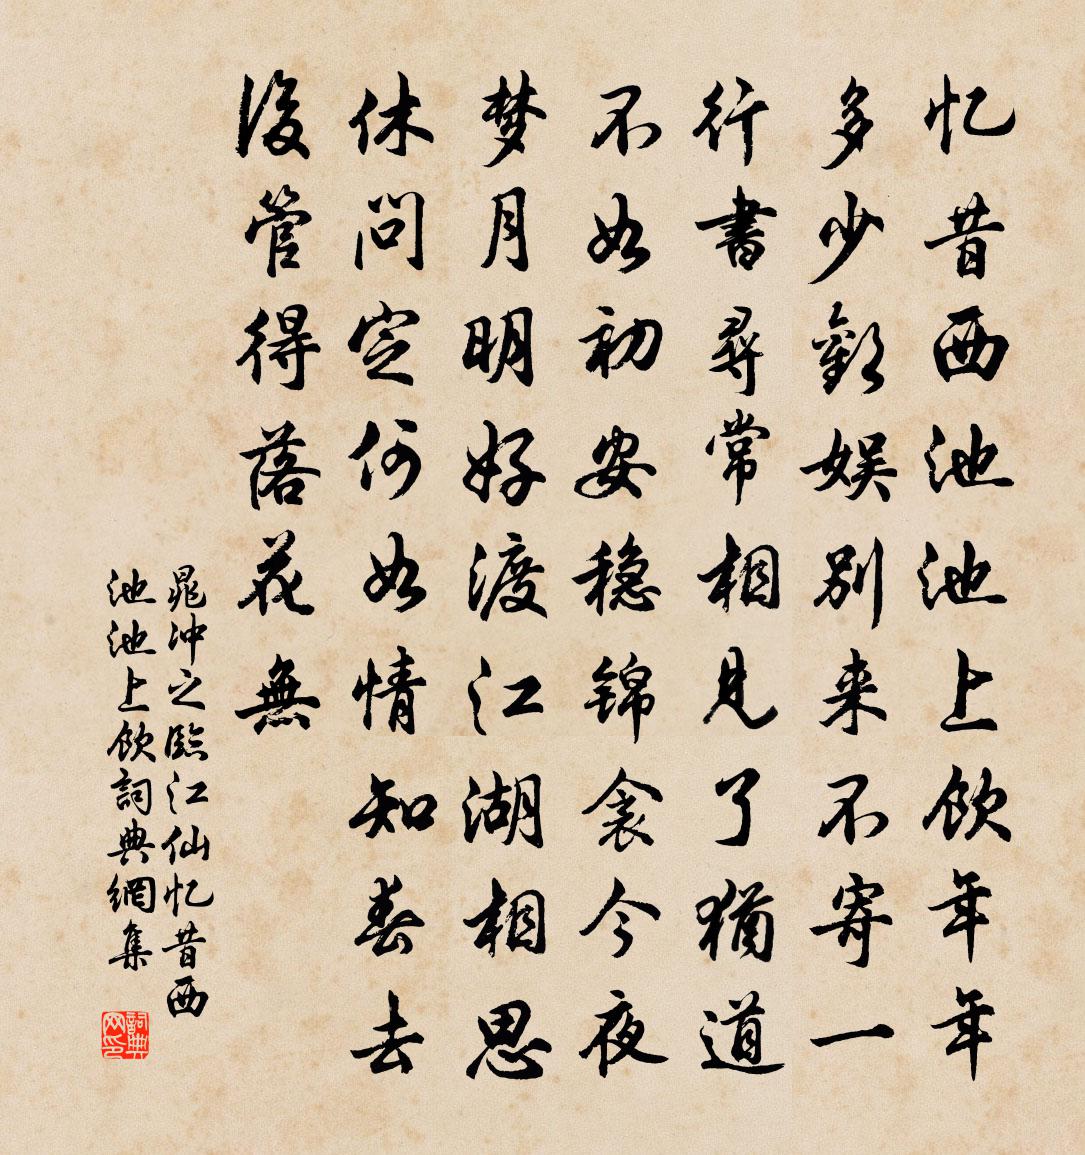 忆昔西池池上飲年年
多少歡娱别来不寄一
行書尋常相見了猶道
不如初安穏锦衾今夜
梦月明好渡江湖相思
休問定何如情知春去
後管得落花無
晁冲之臨江仙忆昔西
池池上飲詞典網集
詞典网印